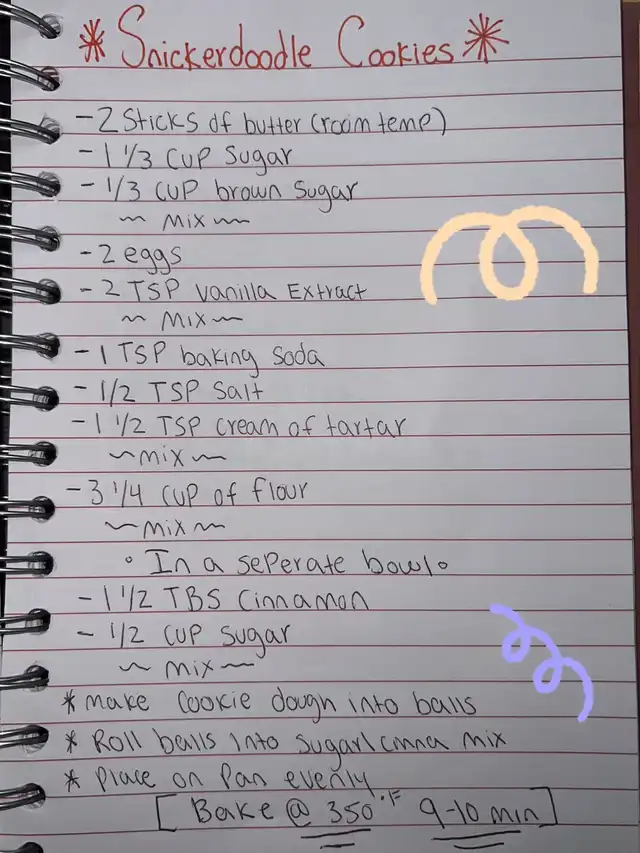 * Snickerdoodle Cookies *
- 2 Sticks of butter (room temp)
- 1 1/3 cup Sugar
- 1/3 cup brown Sugar
~ Mix ~
- 2 eggs
- 2 TSP vanilla Extract
~ Mix ~
- 1 TSP baking Soda
- 1/2 TSP Salt
- 1 1/2 TSP cream of tartar
~ mix ~
- 3 1/4 cup of flour
~ mix ~
° In a seperate bowl °
- 1 1/2 TBS Cinnamon
- 1/2 cup Sugar
~ mix ~
* make Cookie dough into balls
* Roll balls into sugar/cinna mix
* Place on Pan evenly
[ Bake @ 350°F 9-10 min ]